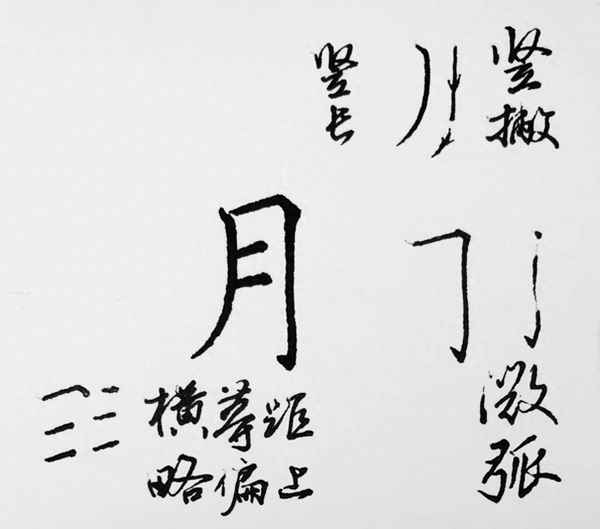 竖撇
竖长
月
微弧
横等距
略偏上